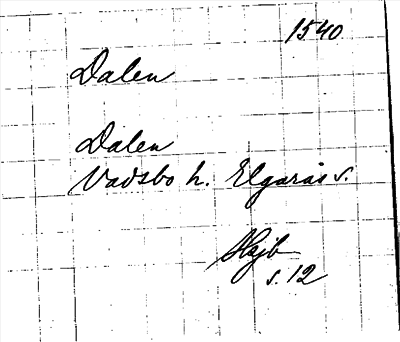 1540
Dalen
Dalen
Vadsbo h. Elgarås s.
Hsjb
s. 12